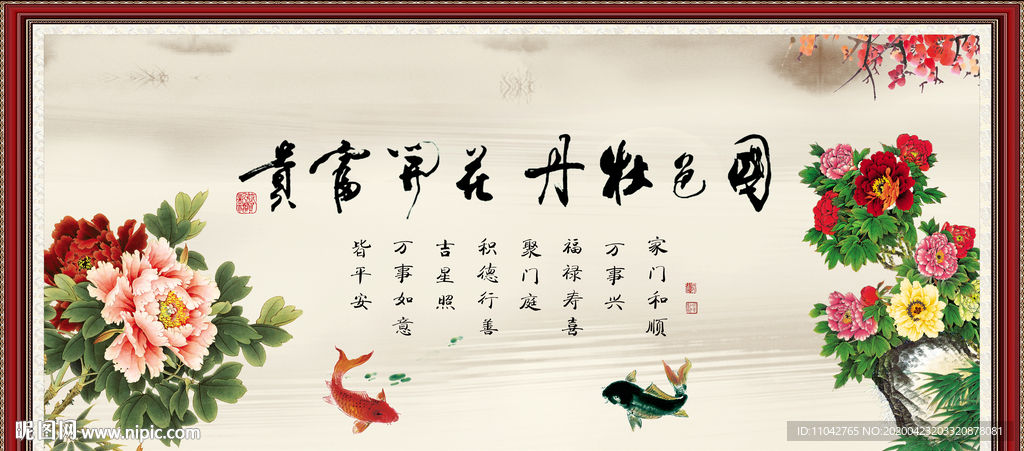 國色牡丹花開富貴
家门和顺
万事兴
福禄寿喜
聚门庭
积德行善
吉星照
万事如意
皆平安
昵图网 www.nipic.com
ID:11042765 NO:20200423203320878081